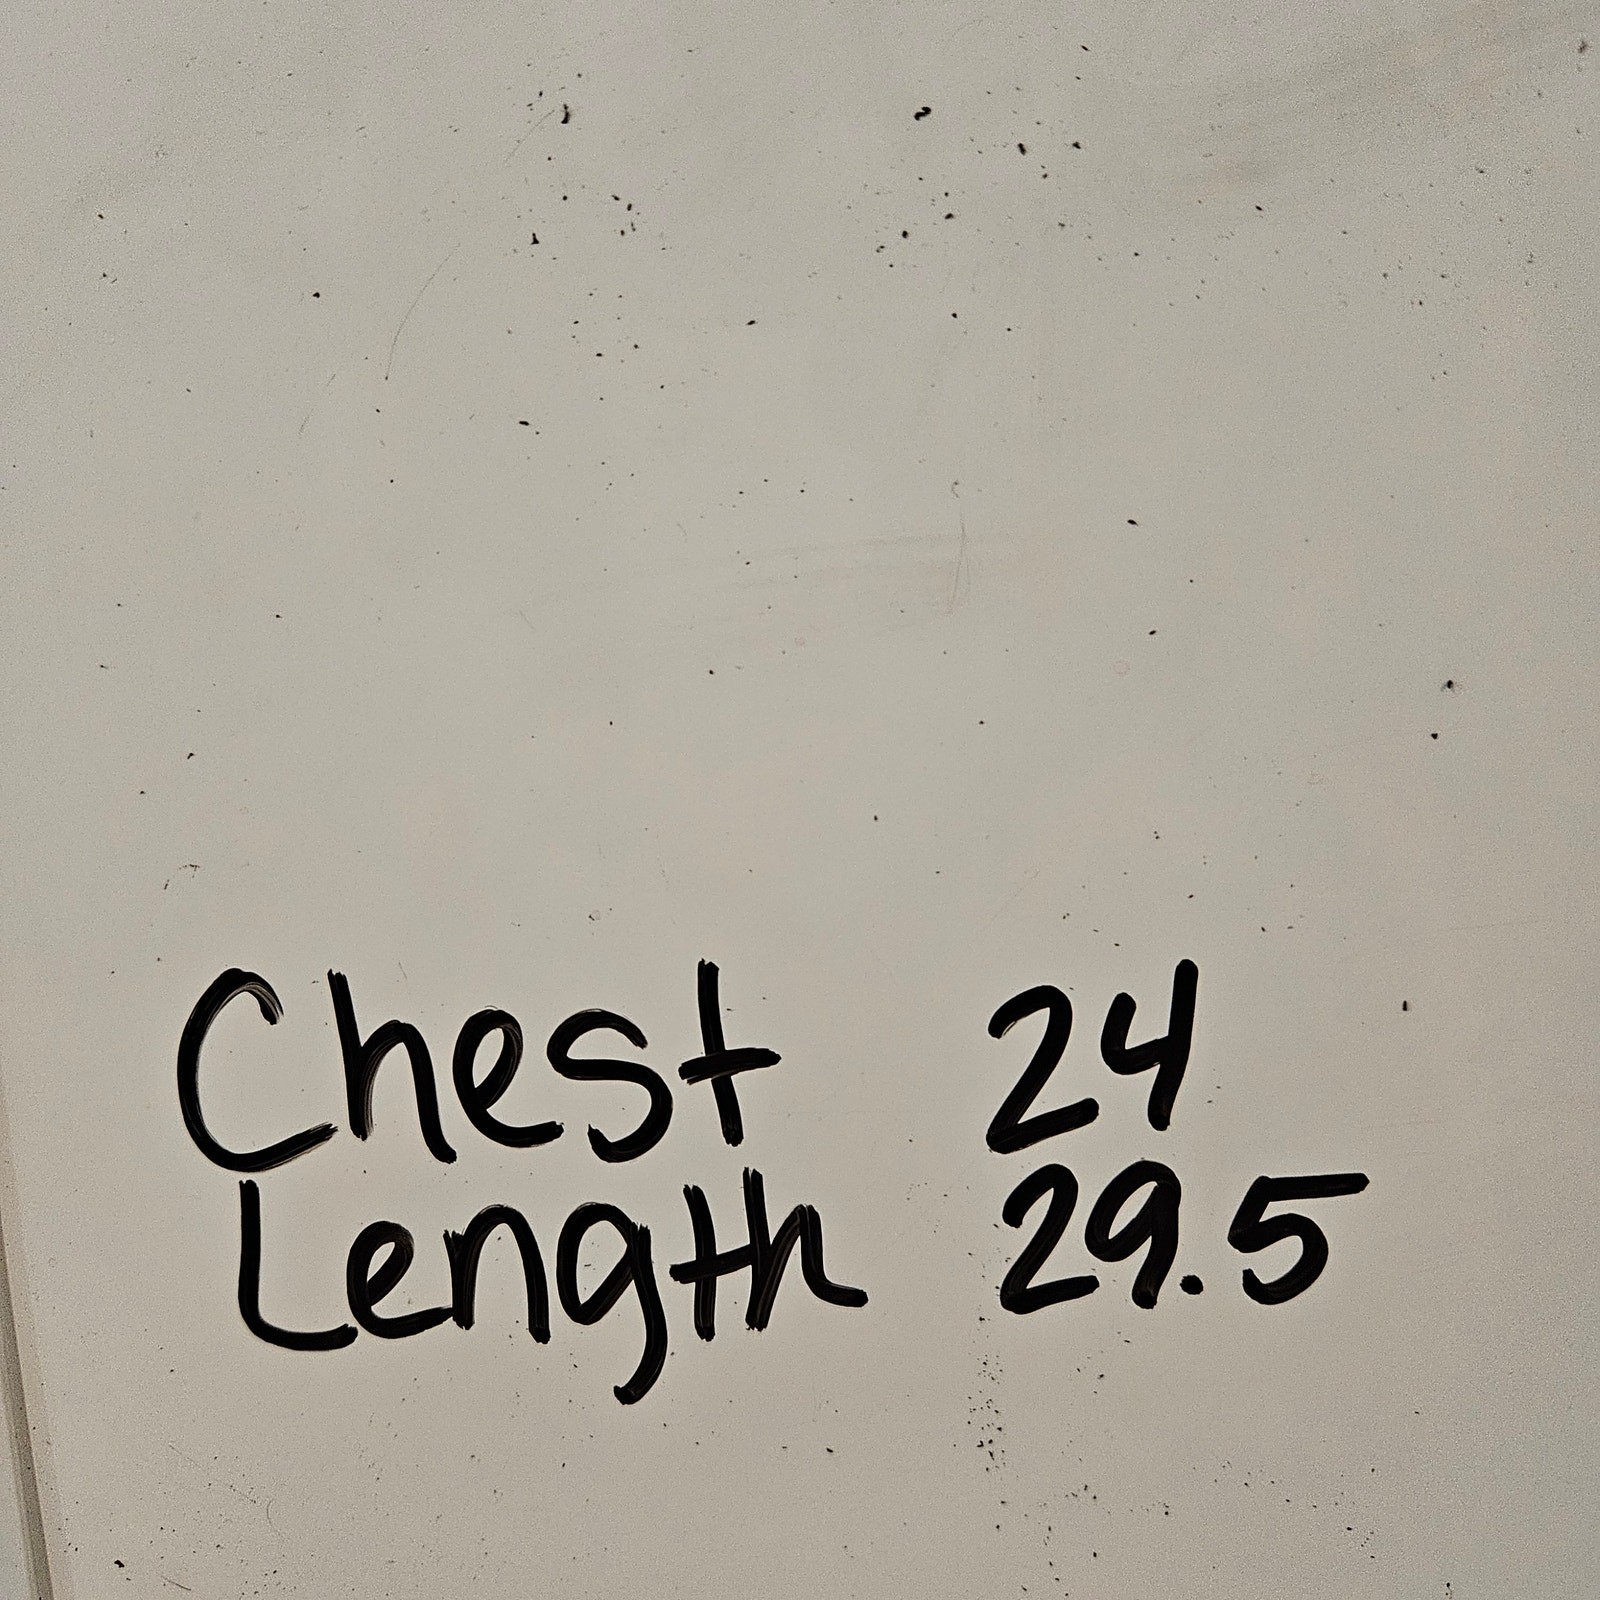 Chest 24
Length 29.5